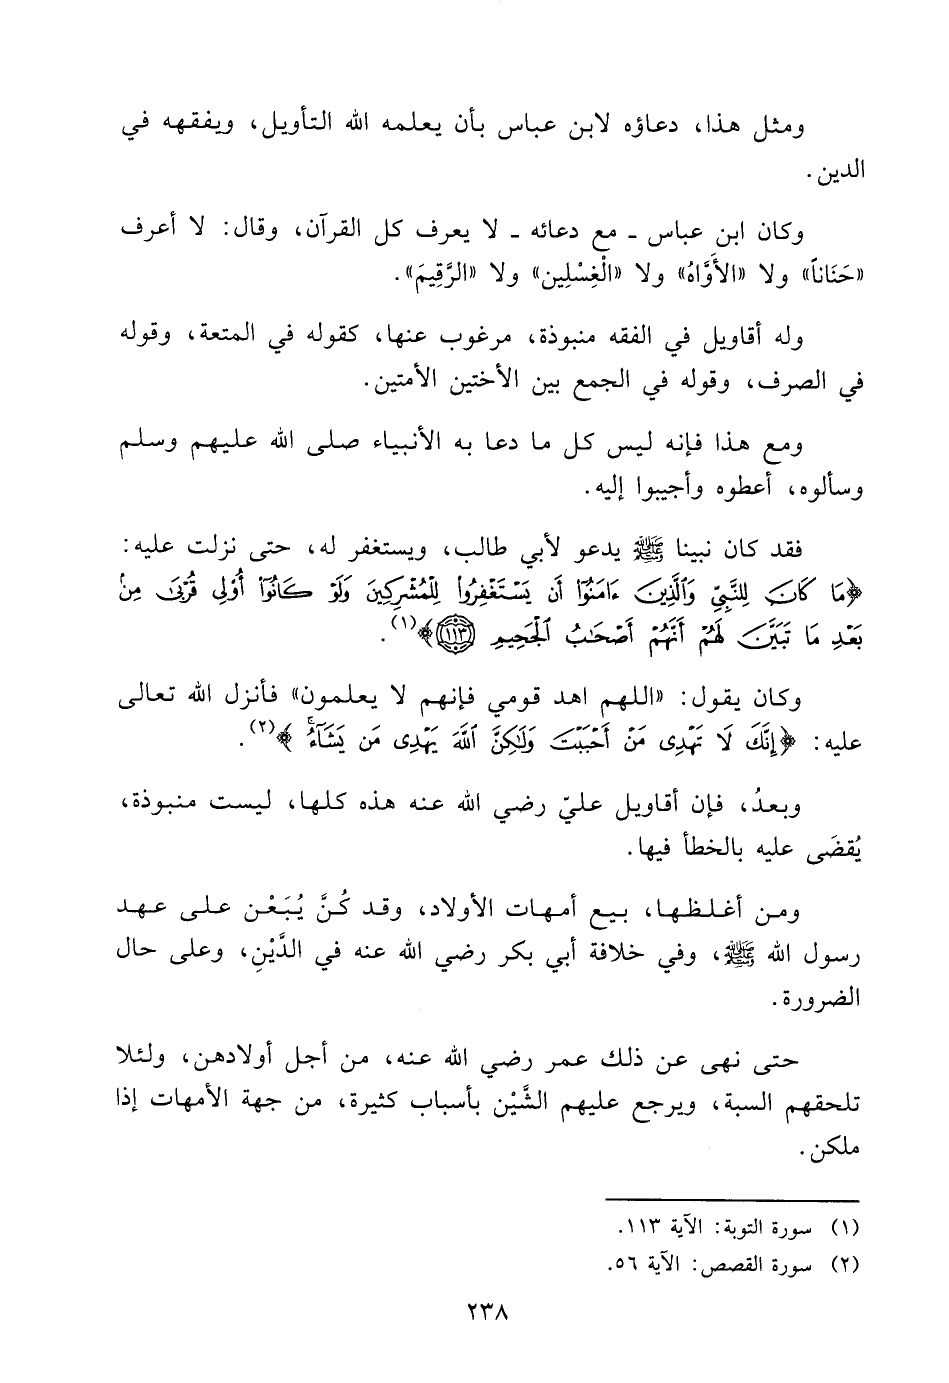 ومثل هذا، دعاؤه لابن عباس بأن يعلمه الله التأويل، ويفقهه في
الدين.
وكان ابن عباس ـ مع دعائه ـ لا يعرف كل القرآن، وقال: لا أعرف
«حَنَاناً» ولا «الأَوَّاهُ» ولا «الْغِسْلِين» ولا «الرَّقِيمَ».
وله أقاويل في الفقه منبوذة، مرغوب عنها، كقوله في المتعة، وقوله
في الصرف، وقوله في الجمع بين الأختين الأمتين.
ومع هذا فإنه ليس كل ما دعا به الأنبياء صلى الله عليهم وسلم
وسألوه، أعطوه وأجيبوا إليه.
فقد كان نبينا ﷺ يدعو لأبي طالب، ويستغفر له، حتى نزلت عليه:
﴿مَا كَانَ لِلنَّبِيِّ وَٱلَّذِينَ ءَامَنُوٓا۟ أَن يَسْتَغْفِرُوا۟ لِلْمُشْرِكِينَ وَلَوْ كَانُوٓا۟ أُو۟لِى قُرْبَىٰ مِنۢ
بَعْدِ مَا تَبَيَّنَ لَهُمْ أَنَّهُمْ أَصْحَٰبُ ٱلْجَحِيمِ ۝١١٣﴾(١).
وكان يقول: «اللهم اهد قومي فإنهم لا يعلمون» فأنزل الله تعالى
عليه: ﴿إِنَّكَ لَا تَهْدِى مَنْ أَحْبَبْتَ وَلَٰكِنَّ ٱللَّهَ يَهْدِى مَن يَشَآءُ ۚ﴾(٢).
وبعدُ، فإن أقاويل عليّ رضي الله عنه هذه كلها، ليست منبوذة،
يُقضَى عليه بالخطأ فيها.
ومن أغلظها، بيع أمهات الأولاد، وقد كُنَّ يُبَعْن على عهد
رسول الله ﷺ، وفي خلافة أبي بكر رضي الله عنه في الدَّيْنِ، وعلى حال
الضرورة.
حتى نهى عن ذلك عمر رضي الله عنه، من أجل أولادهن، ولئلا
تلحقهم السبة، ويرجع عليهم الشَّيْن بأسباب كثيرة، من جهة الأمهات إذا
ملكن.
(١) سورة التوبة: الآية ١١٣.
(٢) سورة القصص: الآية ٥٦.
٢٣٨